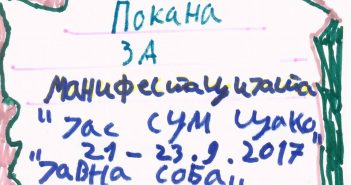 Покана
ЗА
манифестацијата
"Јас сум цако"
21-23.9.2017
"Јавна соба"